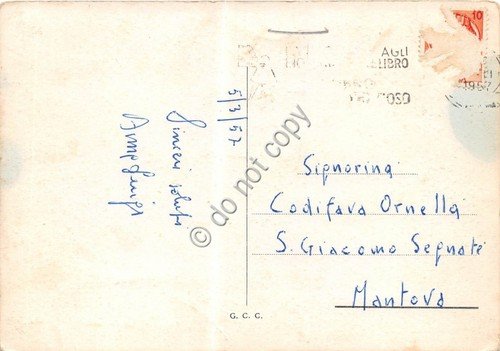 5/3/57
Sinceri saluti
Luigi
10
AGLI
LIBRO
1957
Signorina
Codifava Ornella
S. Giacomo Segnate
Mantova
G. C. G.
© do not copy